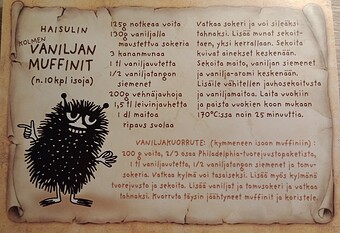 HAISULIN
KOLMEN
VANILJAN
MUFFINIT
(n. 10 kpl isoja)
125g notkeaa voita
190g vaniljalla
maustettua sokeria
3 kananmunaa
1 tl vaniljauutetta
1/2 vaniljatangon
siemenet
200g vehnäjauhoja
1,5 tl leivinjauhetta
1 dl maitoa
ripaus suolaa
Vatkaa sokeri ja voi sileäksi
tahnaksi. Lisää munat sekoit-
taen, yksi kerrallaan. Sekoita
kuivat ainekset keskenään.
Sekoita maito, vaniljan siemenet
ja vanilja-aromi keskenään.
Lisäile vähitellen jauhoseikoitusta
ja vaniljamaitoa. Laita vuokiin
ja paista vuokien koon mukaan
170°C:ssa noin 25 minuuttia.
VANILJAKUORRUTE: (kymmeneen isoon muffiniin) :
200 g voita, 2/3 osaa Philadelphia-tuorejuustopaketista,
1 tl vaniljauutetta, 1/2 vaniljatangon siemenet ja tomu-
sokeria. Vatkaa kylmä voi tasaiseksi. Lisää myös kylmänä
tuorejuusto ja sekoita. Lisää vaniljat ja tomusokeri ja vatkaa
tahnaksi. Kuorruta täysin jäähtyneet muffinit ja koristele.